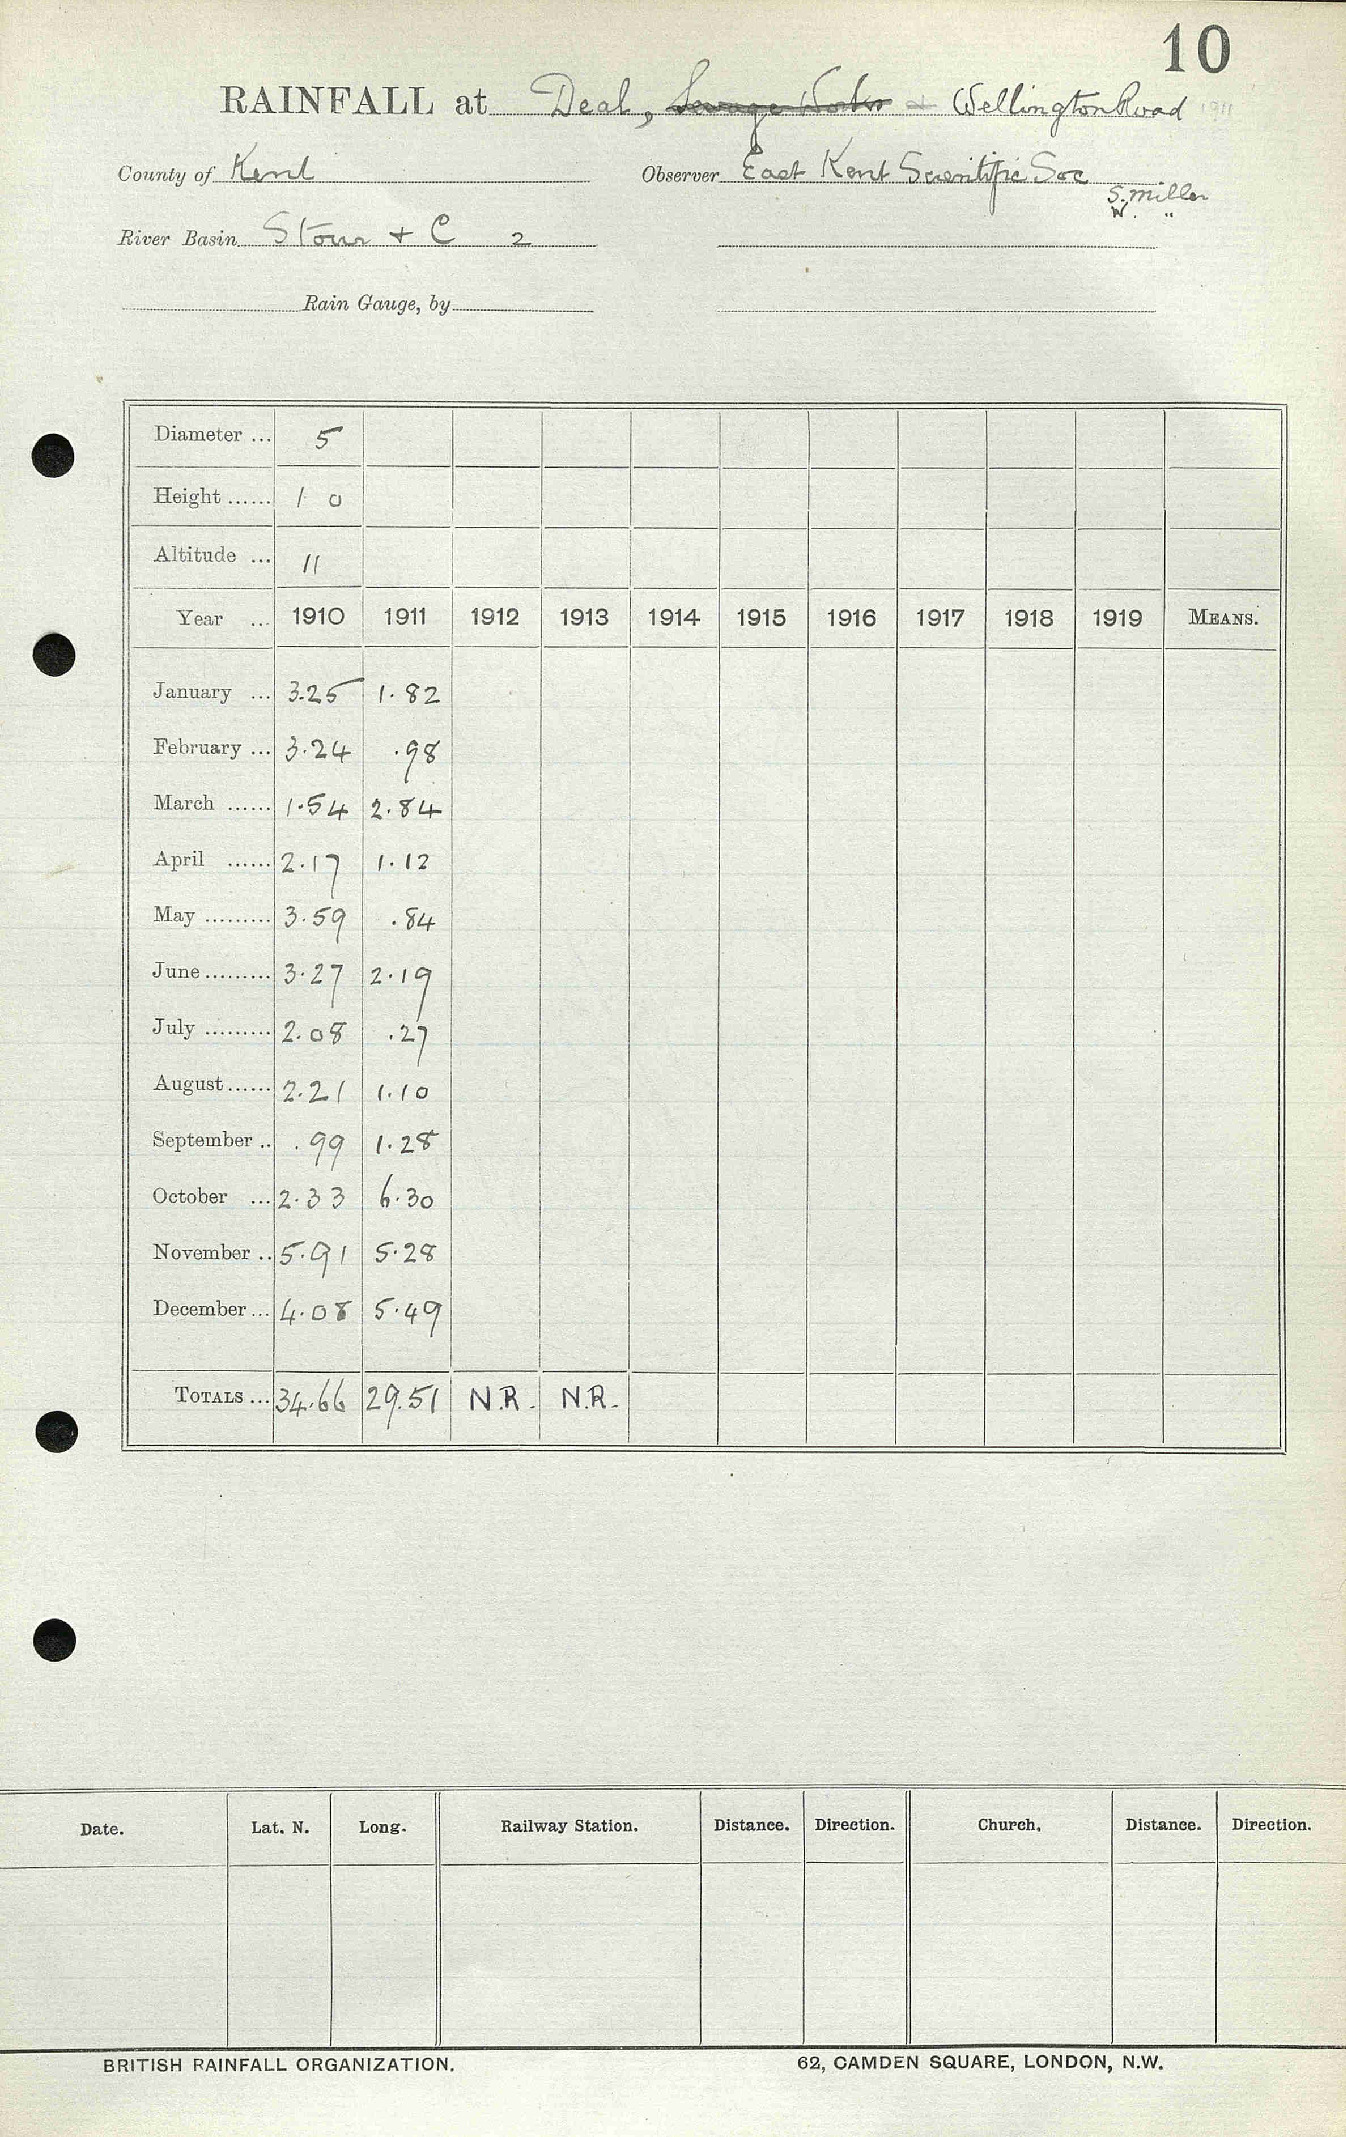 10
RAINFALL at Deal, Sewage Works at Wellington Road 1911
County of Kent Observer East Kent Scientific Soc
S. Miller
W. "
River Basin Stour + C 2
Rain Gauge, by
Diameter ... 5
Height ...... 1 0
Altitude ... 11
Year ... 1910 1911 1912 1913 1914 1915 1916 1917 1918 1919 MEANS.
January ... 3.25 1.82
February ... 3.24 .98
March ...... 1.54 2.84
April ...... 2.17 1.12
May ......... 3.59 .84
June ......... 3.27 2.19
July ......... 2.08 .27
August ...... 2.21 1.10
September .. .99 1.28
October ... 2.33 6.30
November .. 5.91 5.28
December ... 4.08 5.49
TOTALS ... 34.66 29.51 N.R. N.R.
Date. Lat. N. Long. Railway Station. Distance. Direction. Church. Distance. Direction.
BRITISH RAINFALL ORGANIZATION. 62, CAMDEN SQUARE, LONDON, N.W.